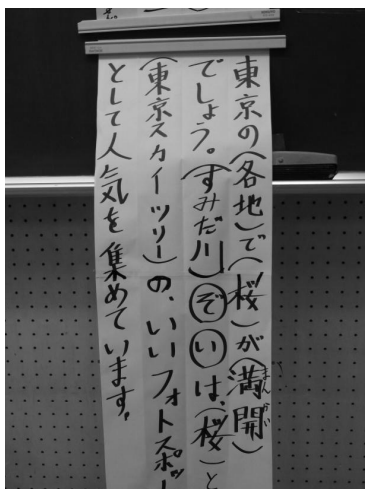 東京の(各地)で(桜)が(満開)
まんかい
でしょう。(すみだ川)ぞいは、(桜)と
(東京スカイツリー)の、いいフォトスポッ
として人気を集めています。